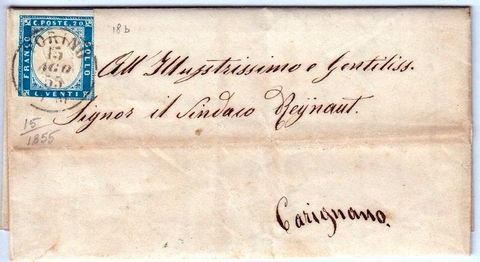 C. POSTE 20
FRANCO
BOLLO
C. VENTI
TORINO
15
AGO
55
18 b
All' Illustrissimo e Gentiliss.
Signor il Sindaco Reÿnaut.
15
1855
Carignano.